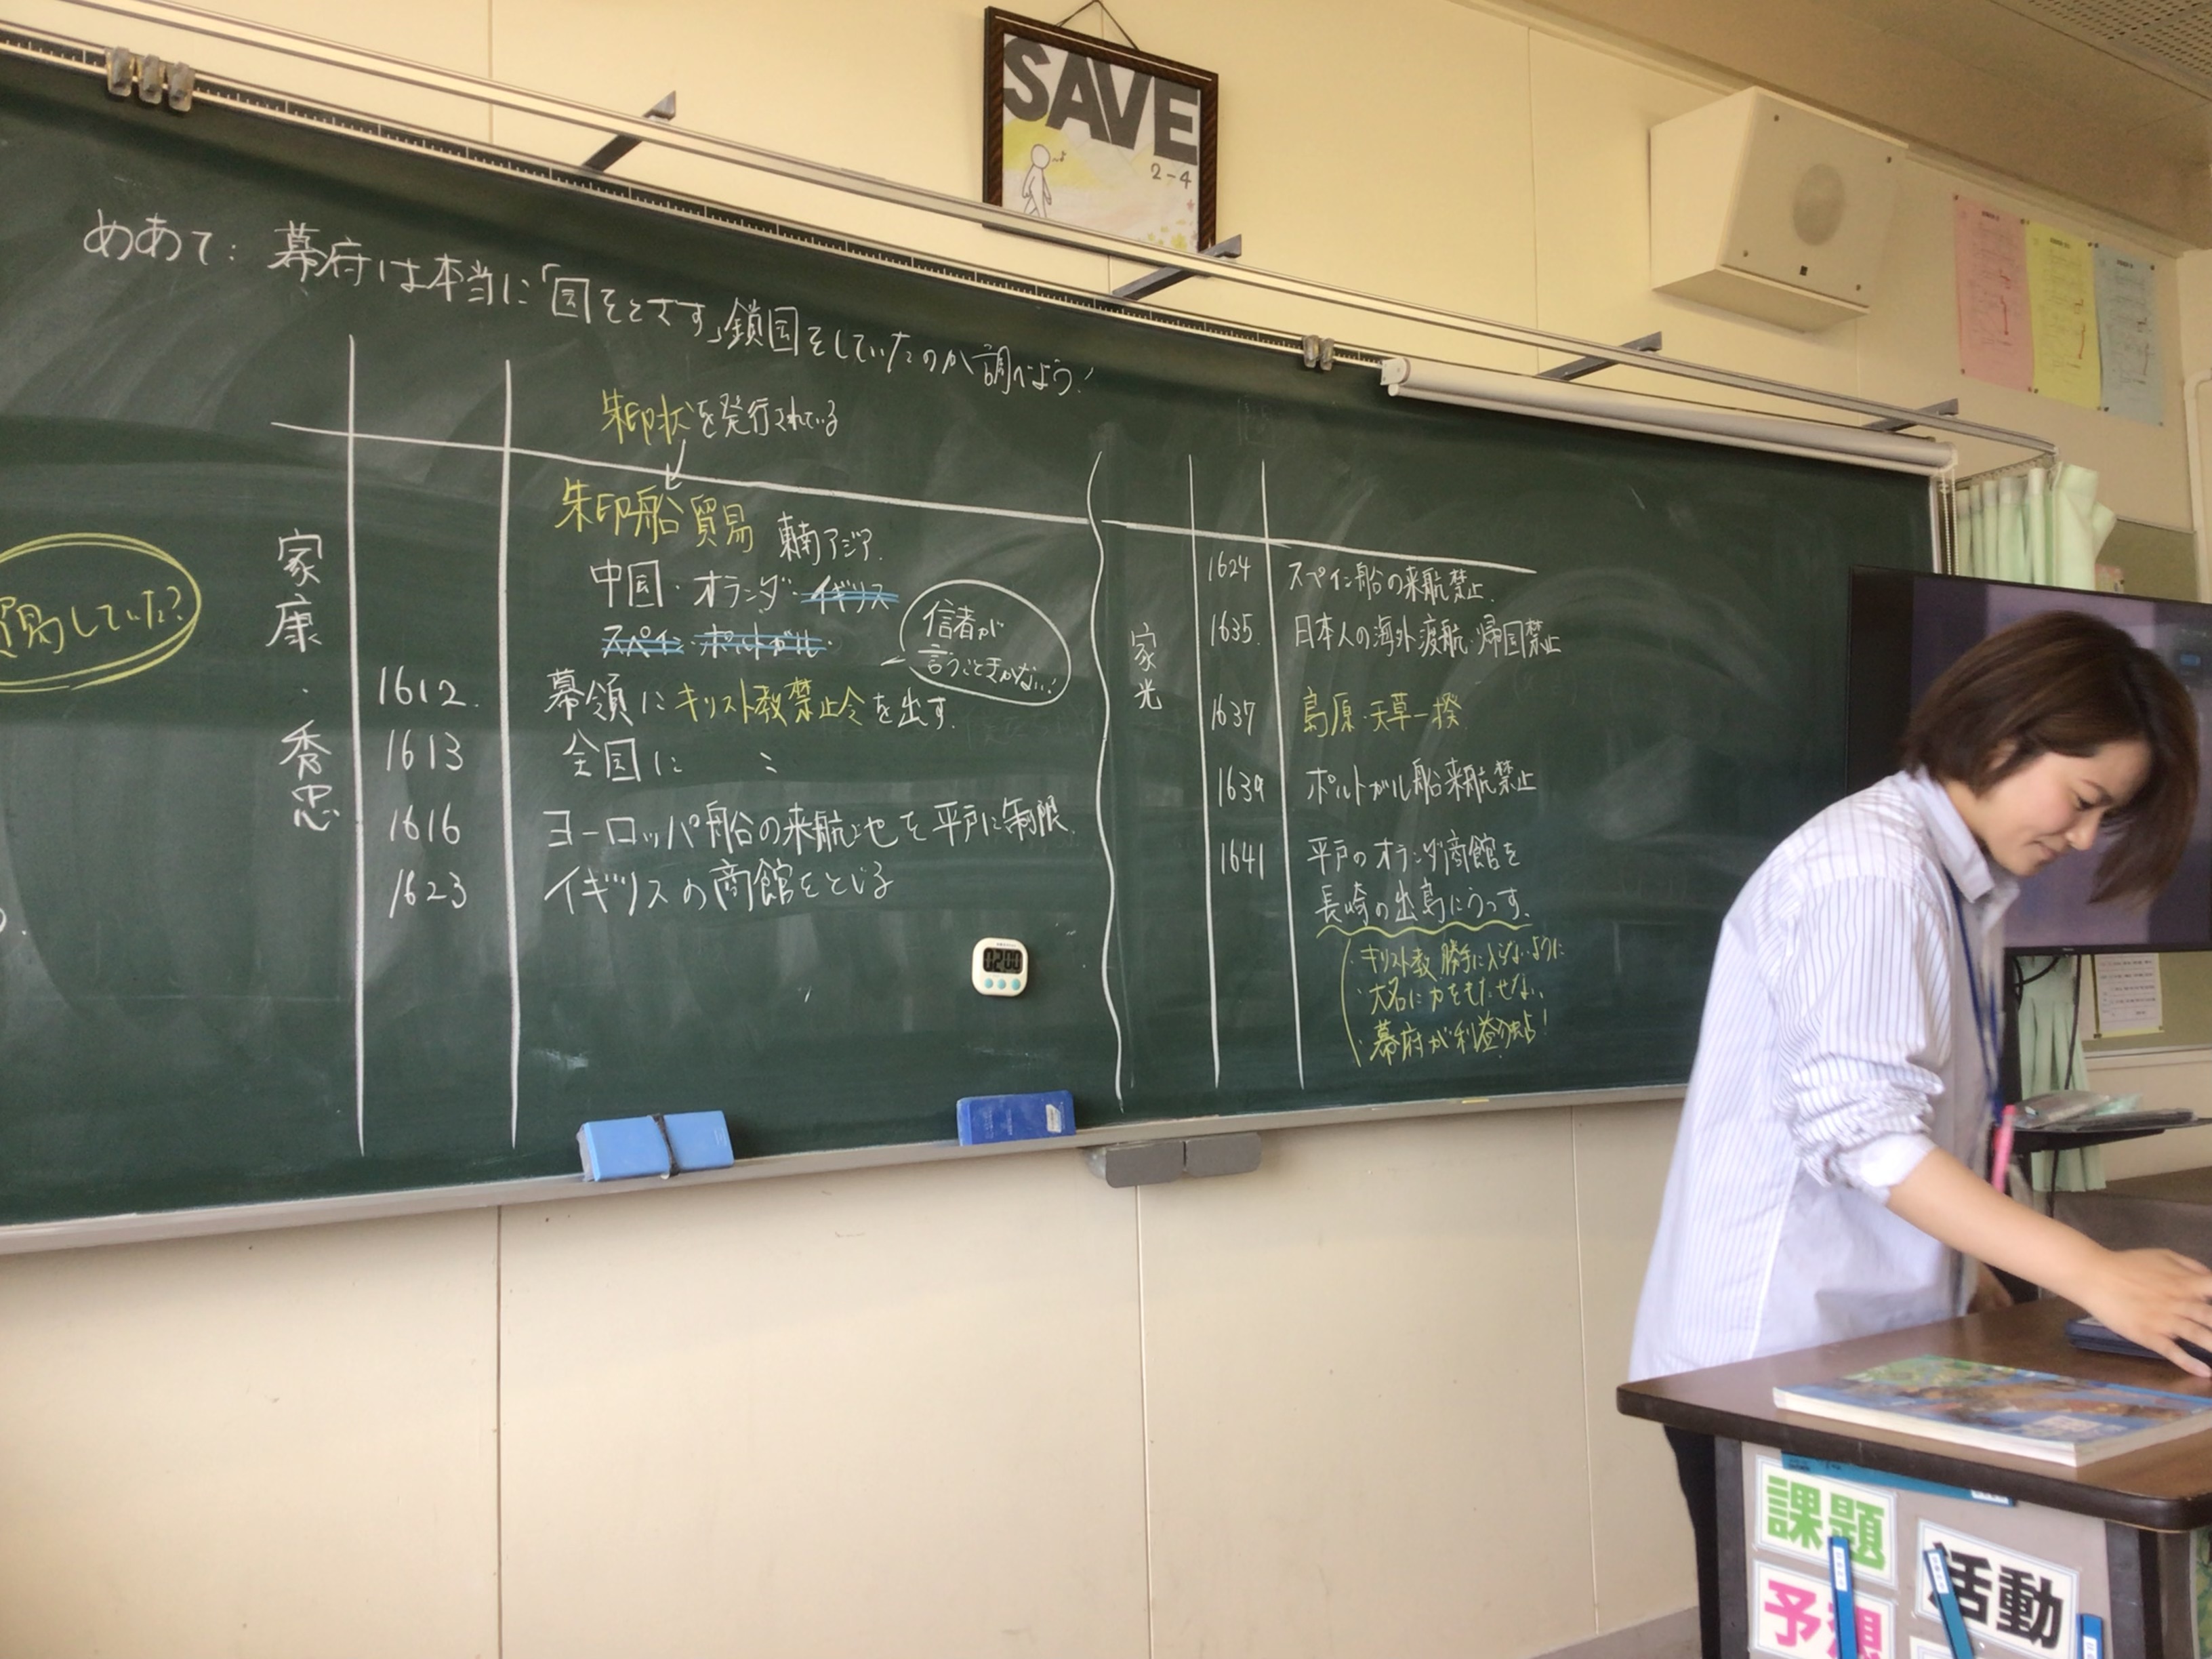 SAVE
2-4
めあて: 幕府は本当に「国をとざす」鎖国をしていたのか調べよう!
朱印状を発行されている
朱印船貿易 東南アジア.
中国・オランダ・イギリス
スペイン・ポルトガル.
信者が
言うこときかない!
易していた?
家康・秀忠
1612. 幕領にキリスト教禁止令を出す.
1613 全国に 〃
1616 ヨーロッパ船の来航地を平戸に制限.
1623 イギリスの商館をとじる
02:00
家光
1624 スペイン船の来航禁止.
1635. 日本人の海外渡航・帰国禁止
1637 島原・天草一揆
1639 ポルトガル船来航禁止
1641 平戸のオランダ商館を
長崎の出島にうつす.
・キリスト教勝手に入らないように
・大名に力をもたせない.
・幕府が利益独占!
課題
活動
予想